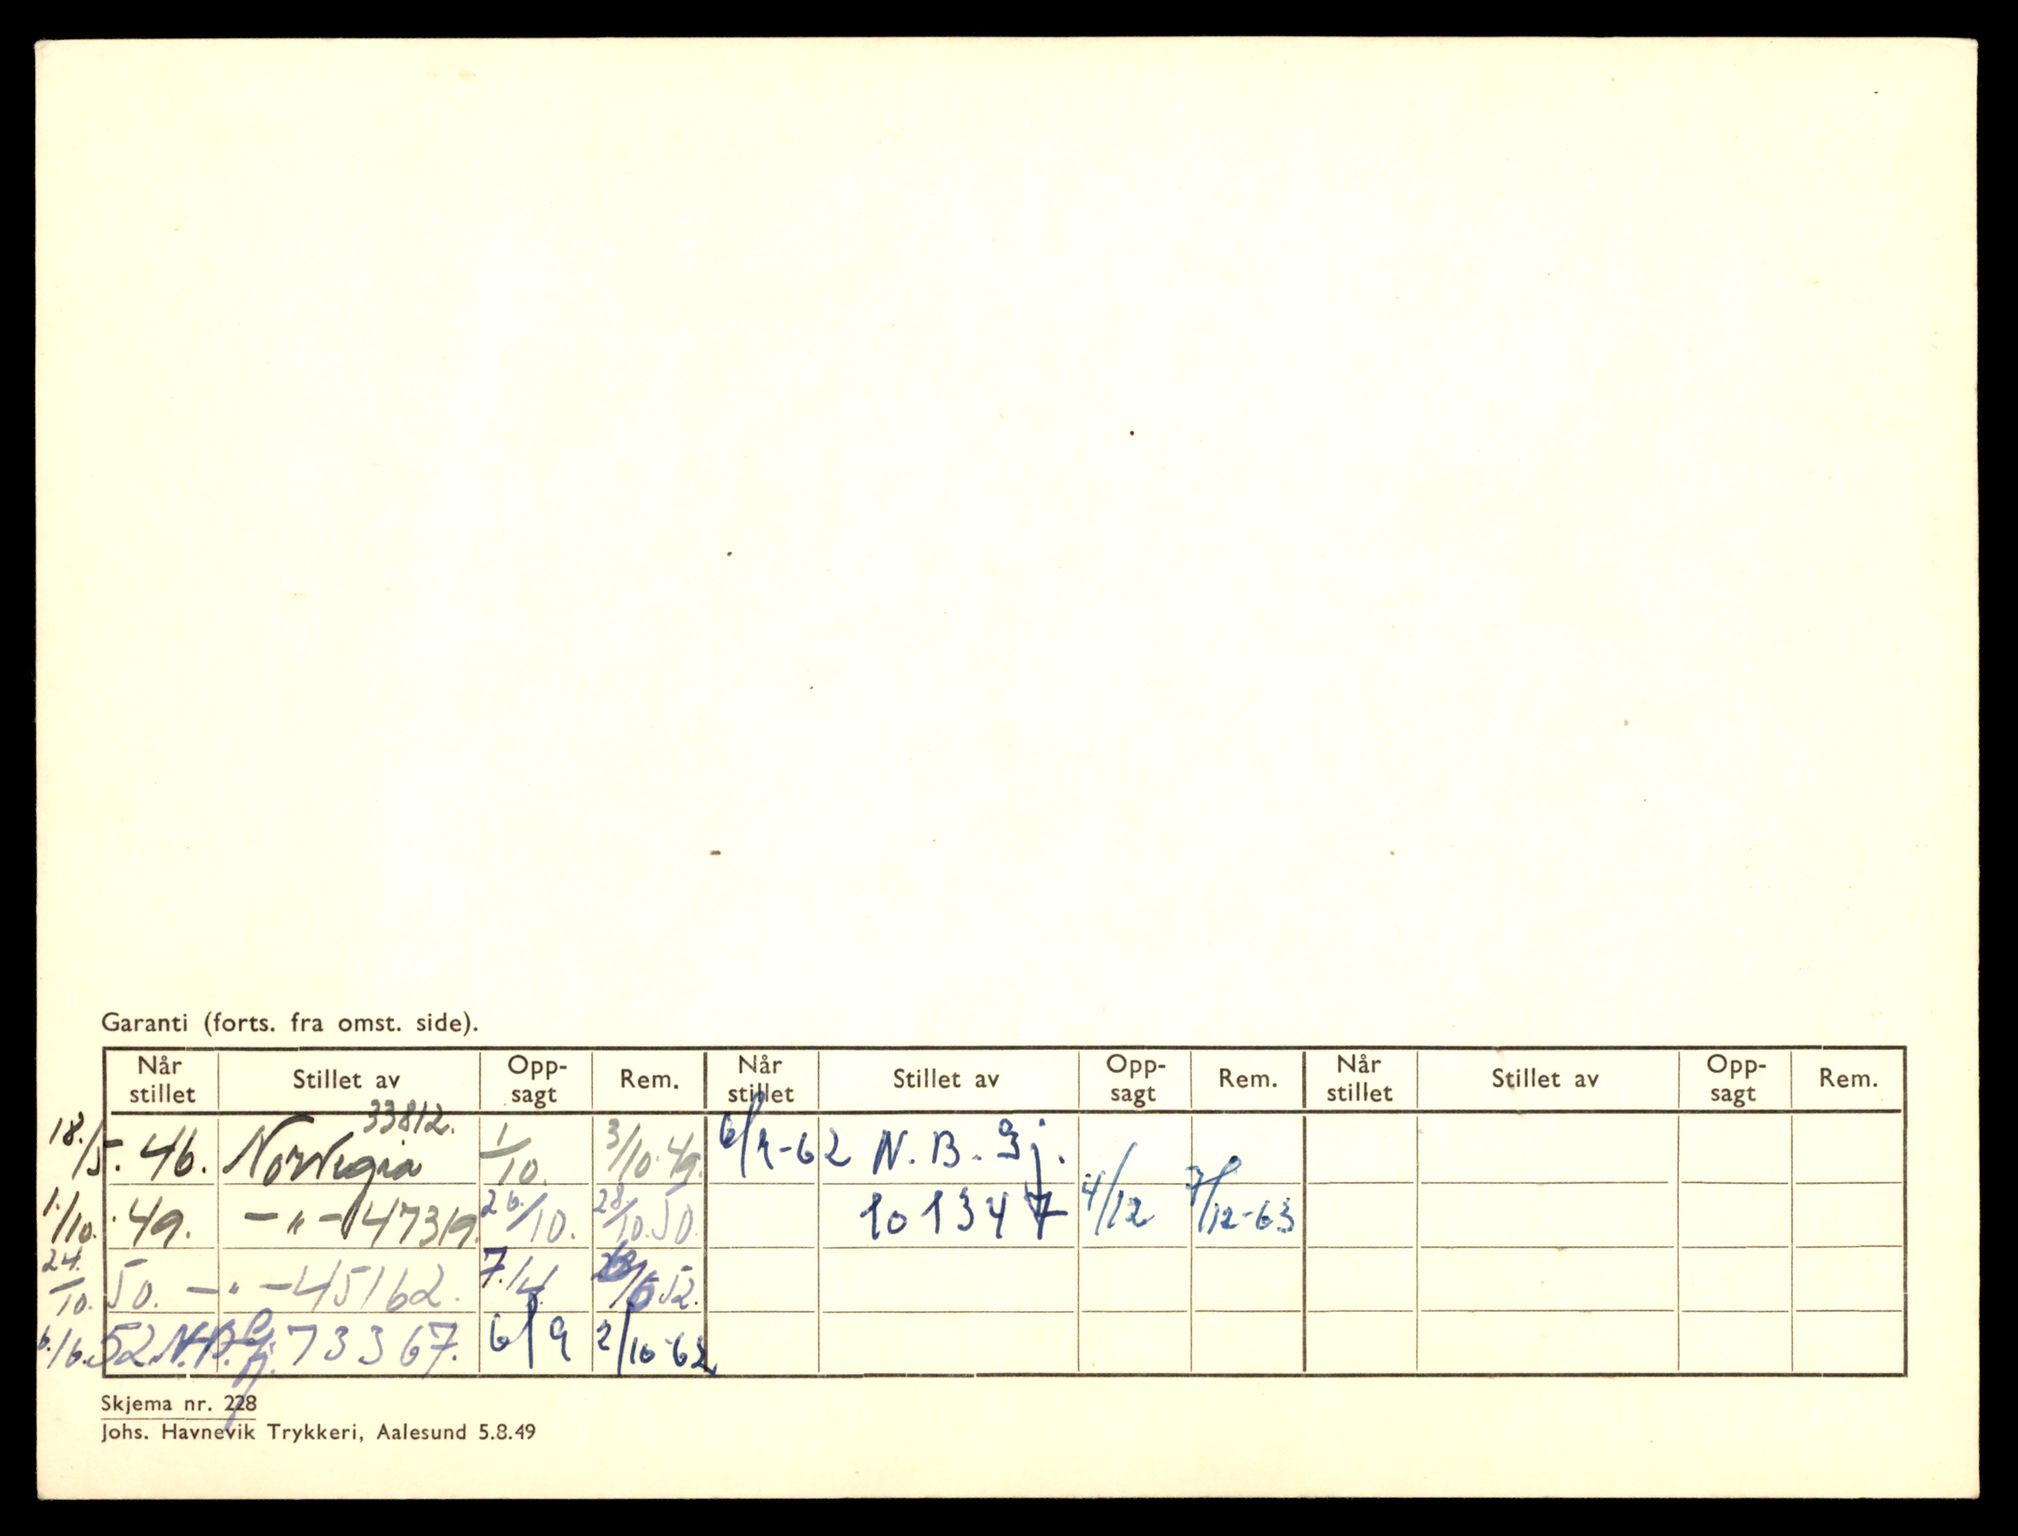 Garanti (forts. fra omst. side).
Når stillet Stillet av Opp-sagt Rem. Når stillet Stillet av Opp-sagt Rem. Når stillet Stillet av Opp-sagt Rem.
33812.
18./5. 46. Norvegia 1/10. 3/10.49. 6/9-62 N.B.Gj.
1./10. 49. —"— 47319. 26./10. 28./10.50. 101347 4/12 7/12-63
24./10. 50. —"— 45162. 7./4. 52.
6./6. 52. N.B.Gj. 73367. 6/9 2/10-62
Skjema nr. 228
Johs. Havnevik Trykkeri, Aalesund 5.8.49